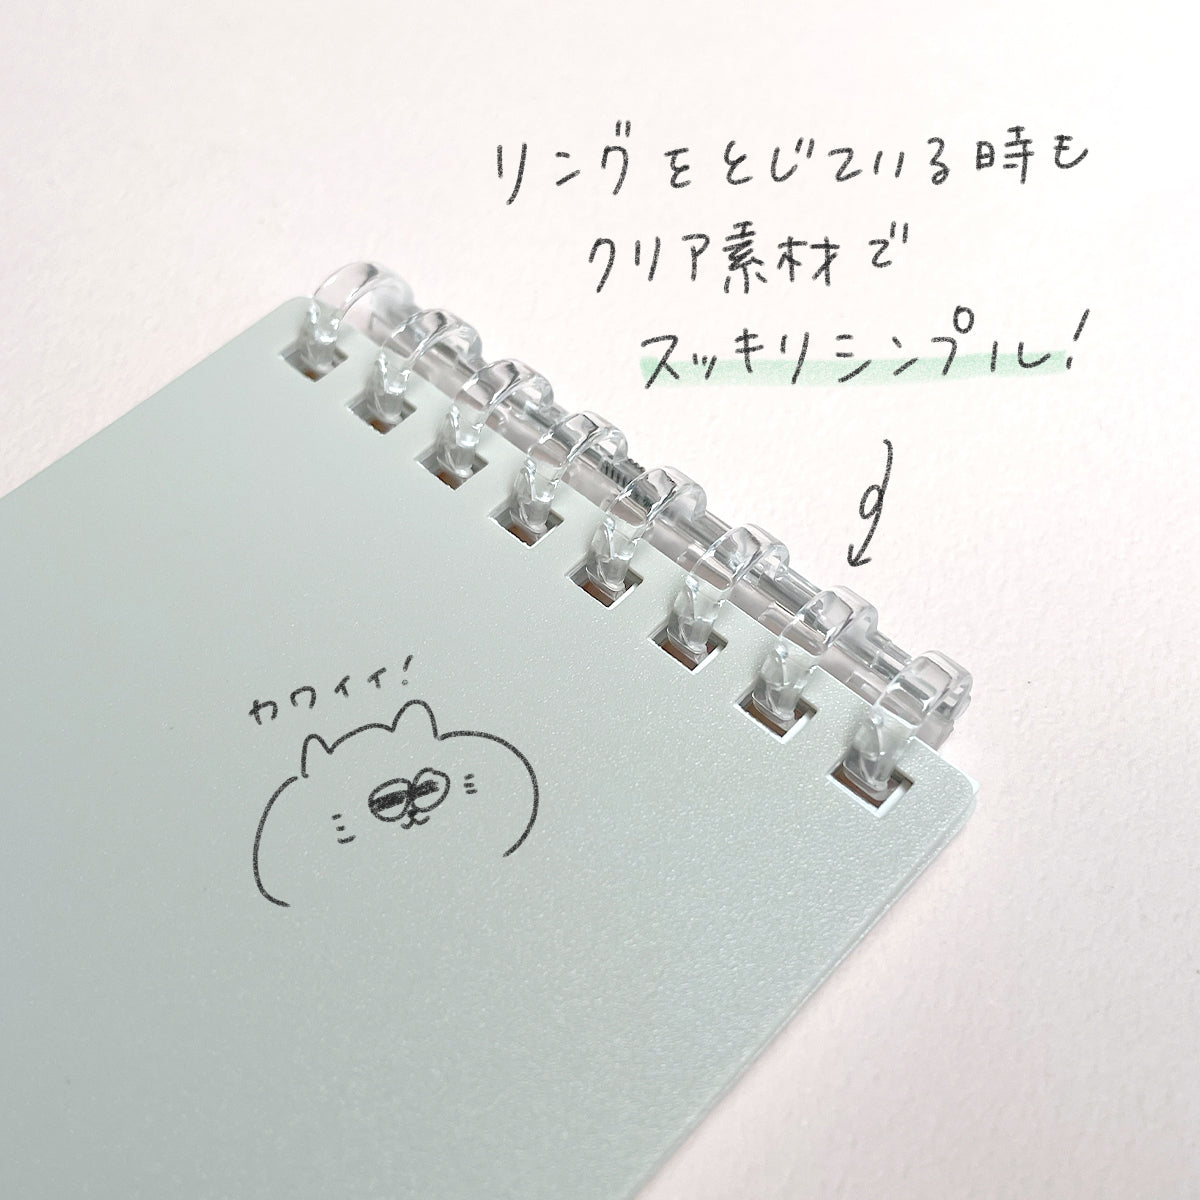 リングをとじている時も
クリア素材で
スッキリシンプル!
カワイイ!